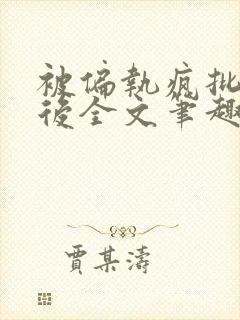 被偏執瘋批
後全文筆趣
賈某濤